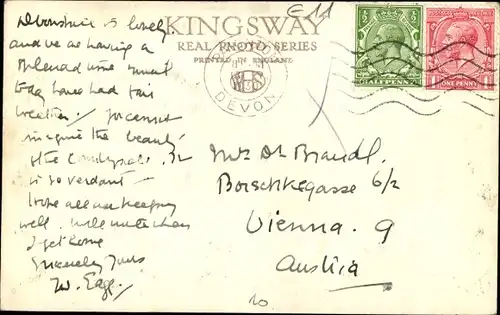 Devonshire is lovely.
and we are having a
splendid time
today have had fair
weather. you cannot
imagine the beauty
of the countryside. It
is so verdant.
hope all are keeping
well. will write when
I get home
Sincerely Yours
W.
KINGSWAY
REAL PHOTO SERIES
PRINTED IN ENGLAND
DEVON
HALF PENNY
ONE PENNY
E 11
Brandl.
Borschkegasse 6/2
Vienna. 9
Austria
10